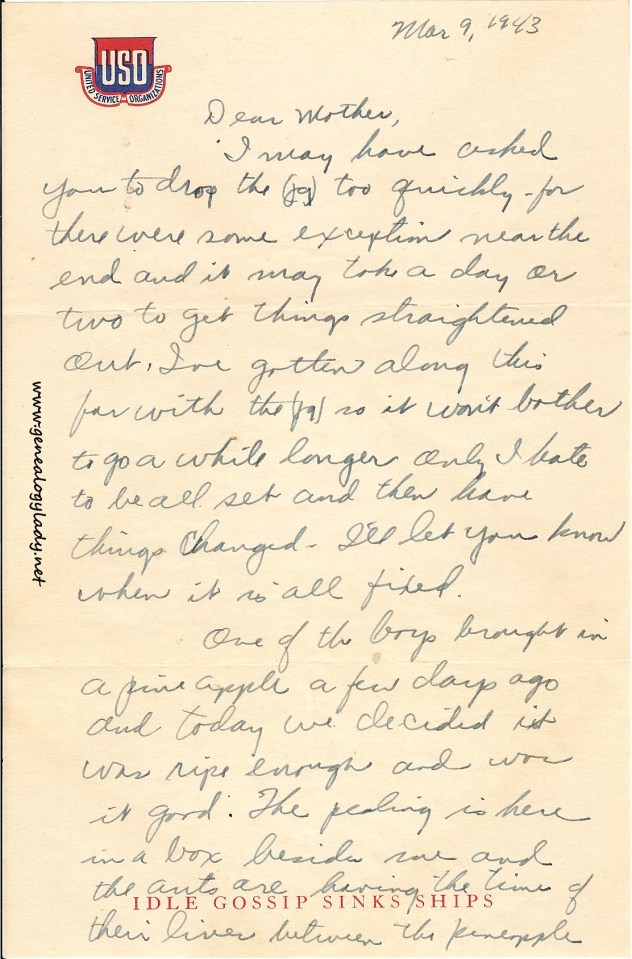 Mar 9, 1943
USO
UNITED SERVICE ORGANIZATIONS
Dear Mother,
I may have asked
you to drop the (jg) too quickly - for
there were some exception near the
end and it may take a day or
two to get things straightened
out. I've gotten along this
far with the (jg) so it won't bother
to go a while longer only I hate
to be all set and then have
things changed - I'll let you know
when it is all fixed.
One of the boys brought in
a pineapple a few days ago
and today we decided it
was ripe enough and was
it good. The pealing is here
in a box beside me and
the ants are having the time of
IDLE GOSSIP SINKS SHIPS
their lives between the pineapple
www.genealogylady.net